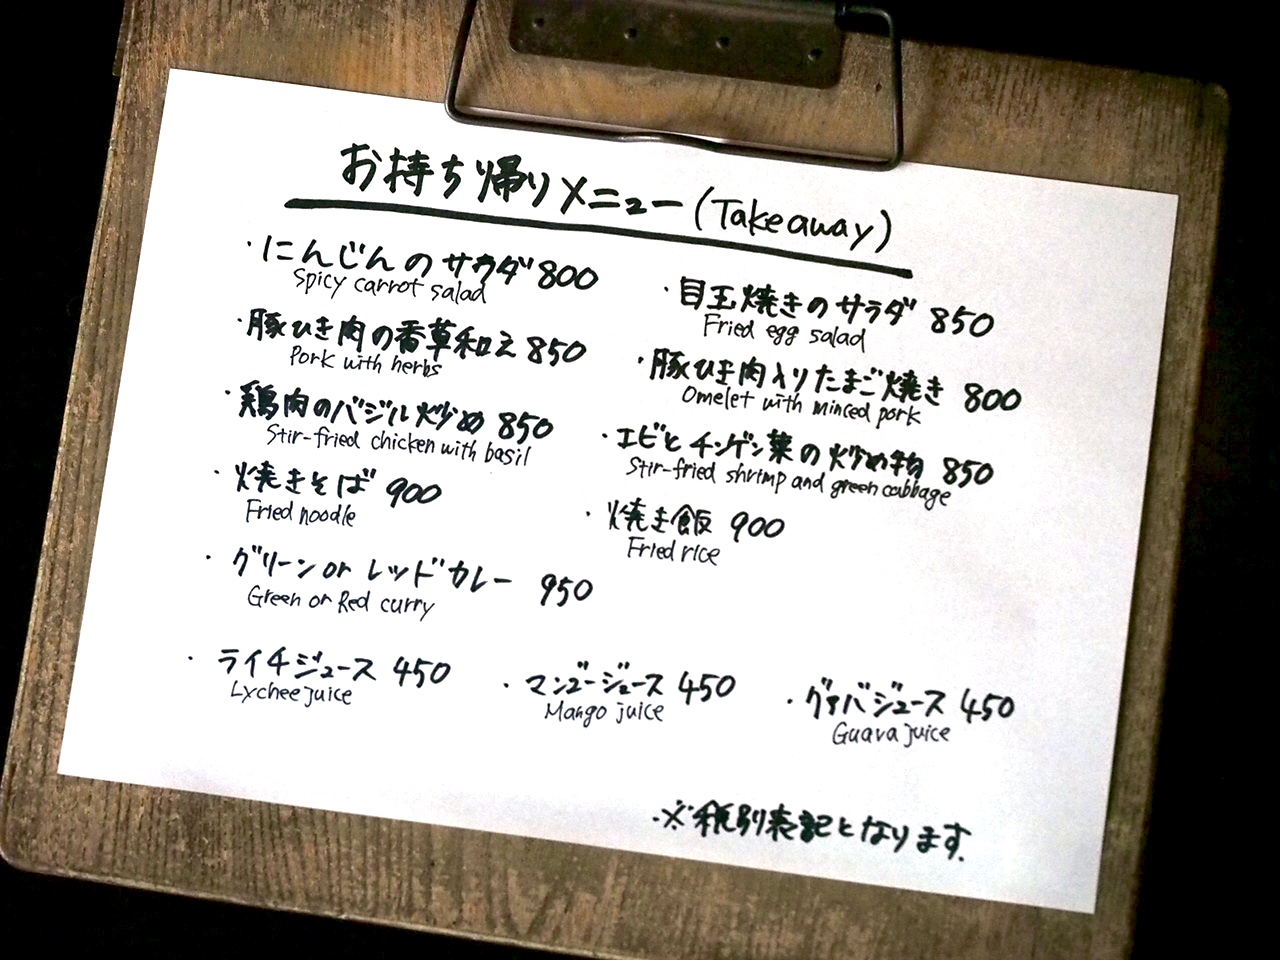 お持ち帰りメニュー(Takeaway)
・にんじんのサラダ 800
Spicy carrot salad
・目玉焼きのサラダ 850
Fried egg salad
・豚ひき肉の香草和え 850
Pork with herbs
・豚ひき肉入りたまご焼き 800
Omelet with minced pork
・鶏肉のバジル炒め 850
Stir-fried chicken with basil
・エビとチンゲン菜の炒め物 850
Stir-fried shrimp and green cabbage
・焼きそば 900
Fried noodle
・焼き飯 900
Fried rice
・グリーン or レッドカレー 950
Green or Red curry
・ライチジュース 450
Lychee juice
・マンゴージュース 450
Mango juice
・グァバジュース 450
Guava juice
・※税別表記となります。